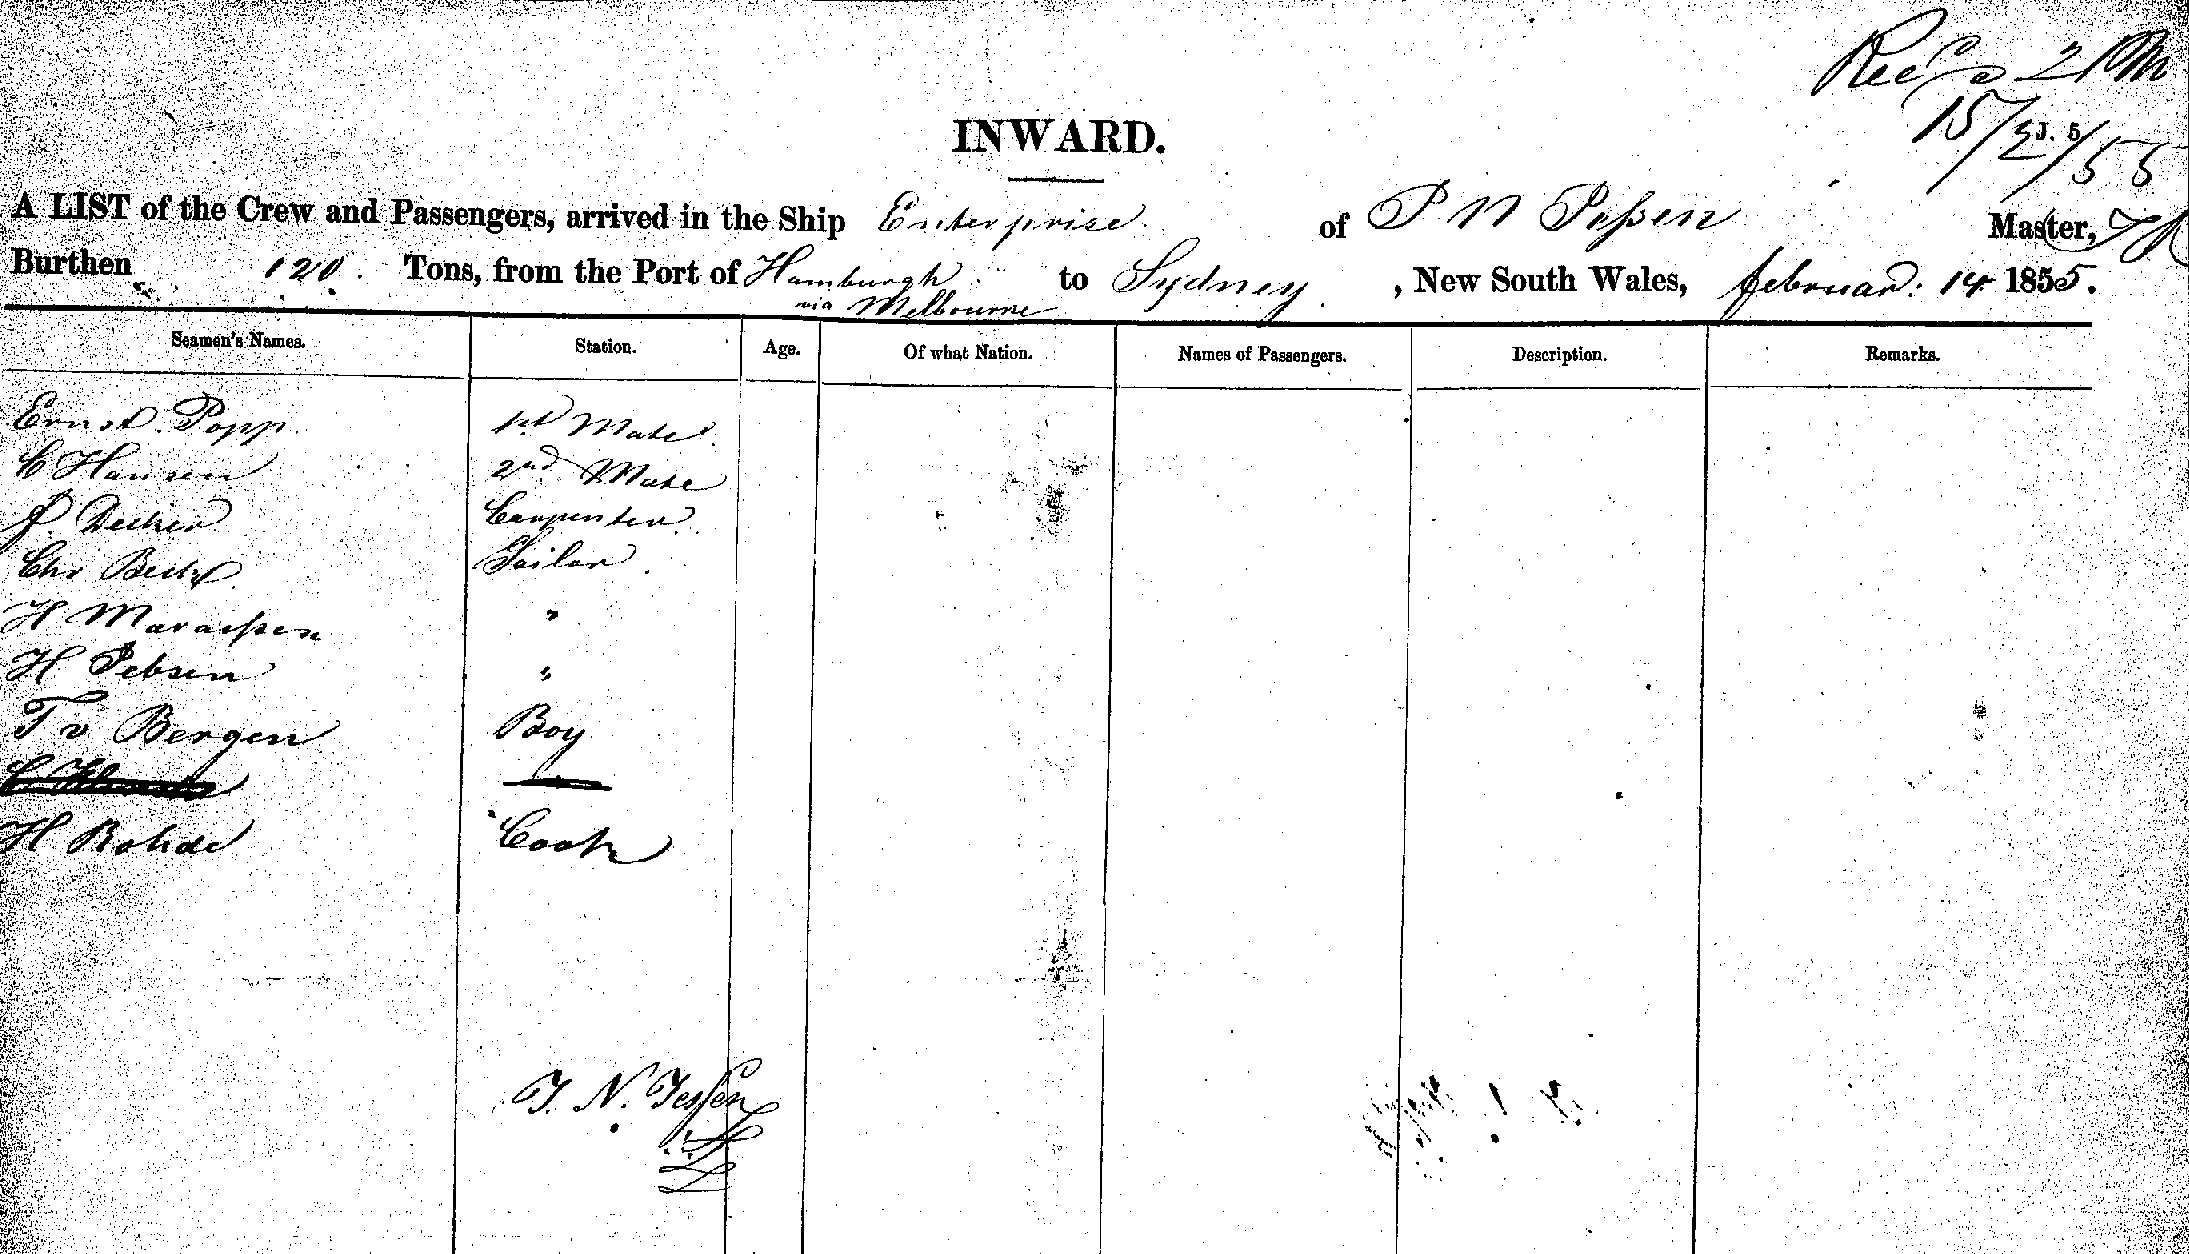 Recd 2 PM
15/2/55
J. 5
INWARD.
A LIST of the Crew and Passengers, arrived in the Ship Enterprise of J N Jessen Master,
Burthen 120 Tons, from the Port of Hamburgh to Sydney, New South Wales, Februar: 14 1855.
via Melbourne
Seamen's Names. Station. Age. Of what Nation. Names of Passengers. Description. Remarks.
Ernst Popp 1st Mate
C Hansen 2nd Mate
J. Decker Carpenter
Chr Beck Sailor
H "
H Jebsen "
T v Bergen Boy
H Rohde Cook
J. N. Jessen